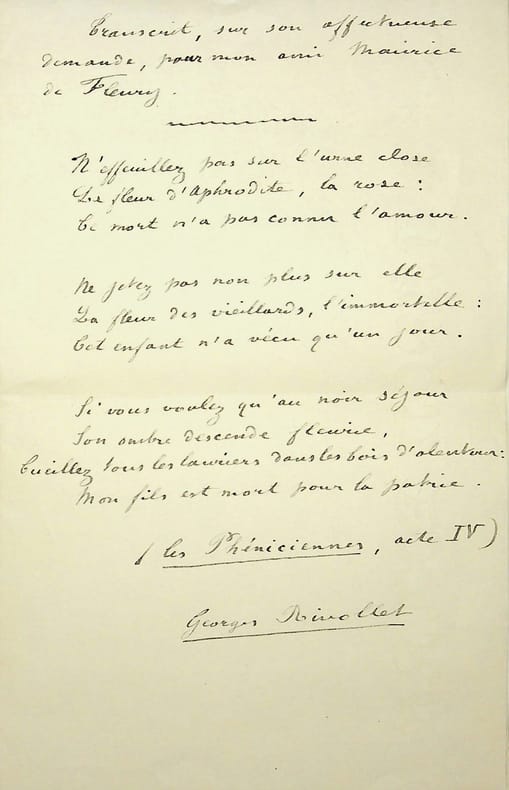 Transcrit, sur son affectueuse
demande, pour mon ami Maurice
de Fleury.
N'effeuillez pas sur l'urne close
La fleur d'Aphrodite, la rose :
Ce mort n'a pas connu l'amour.
Ne jetez pas non plus sur elle
La fleur des vieillards, l'immortelle :
Cet enfant n'a vécu qu'un jour.
Si vous voulez qu'au noir séjour
Son ombre descende fleurie,
Cueillez tous les lauriers dans les bois d'alentour :
Mon fils est mort pour la patrie.
(les Phéniciennes, acte IV)
Georges Rivollet